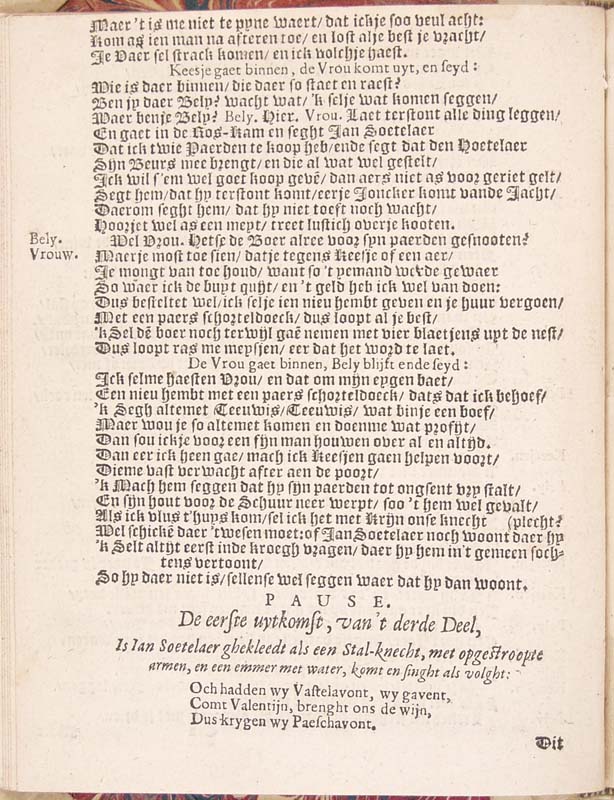 Maer 't is me niet te pyne waert/ dat ickje soo veul acht:
Kom as ien man na afteren toe/ en lost alje best je vracht/
Je Vaer sel strack komen/ en ick volchje haest.
Keesje gaet binnen, de Vrou komt uyt, en seyd:
Wie is daer binnen/ die daer so staet en raest?
Ben jy daer Bely? wacht wat/ 'k selje wat komen seggen/
Waer benje Bely? Bely. Hier. Vrou. Laet terstont alle ding leggen/
En gaet in de Ros-Kam en seght Jan Soetelaer
Dat ick twie Paerden te koop heb/ ende segt dat den Hoetelaer
Sijn Beurs mee brengt/ en die al wat wel gestelt/
Ick wil s'em wel goet koop gevē/ dan aers niet as voor geriet gelt/
Segt hem/ dat hy terstont komt/ eerje Joncker komt vande Jacht/
Daerom seght hem/ dat hy niet toeft noch wacht/
Hoorjet wel as een meyt/ treet lustich overje kooten.
Bely. Wel Vrou. Hetse de Boer alree voor syn paerden gesnooten?
Vrouw. Maerje most toe sien/ datje tegens Keesje of een aer/
Je mongt van toe houd/ want so 't yemand werde gewaer
So waer ick de buyt quijt/ en 't geld heb ick wel van doen:
Dus besteltet wel/ ick selje ien nieu hembt geven en je huur vergoen/
Met een paers schorteldoeck/ dus loopt al je best/
'k Sel dē boer noch terwijl gaē nemen met vier blaetjens uyt de nest/
Dus loopt ras me meysjen/ eer dat het word te laet.
De Vrou gaet binnen, Bely blijft ende seyd:
Ick selme haesten Vrou/ en dat om mijn eygen baet/
Een nieu hembt met een paers schorteldoeck/ dats dat ick behoef/
'k Segh altemet Teeuwis/ Teeuwis/ wat binje een boef/
Maer wou je so altemet komen en doenme wat profijt/
Dan sou ickje voor een fijn man houwen over al en altijd.
Dan eer ick heen gae/ mach ick Keesjen gaen helpen voort/
Dieme vast verwacht after aen de poort/
'k Mach hem seggen dat hy sijn paerden tot ongsent vry stalt/
En sijn hout voor de Schuur neer werpt/ soo 't hem wel gevalt/
Als ick vlus t'huys kom/ sel ick het met Krijn onse knecht (plecht?
Wel schickē daer 'twesen moet: of Jan Soetelaer noch woont daer hy
'k Selt altijt eerst inde kroegh vragen/ daer hy hem in't gemeen soch-
tens vertoont/
So hy daer niet is/ sellense wel seggen waer dat hy dan woont.
PAUSE.
De eerste uytkomst, van 't derde Deel,
Is Ian Soetelaer ghekleedt als een Stal-knecht, met opgestroopte
armen, en een emmer met water, komt en singht als volght:
Och hadden wy Vastelavont, wy gavent,
Comt Valentijn, brenght ons de wijn,
Dus krygen wy Paeschavont.
Dit